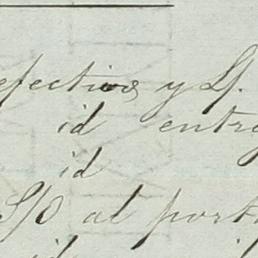 efectivo y L/.
id entre
id
S/O al port
id